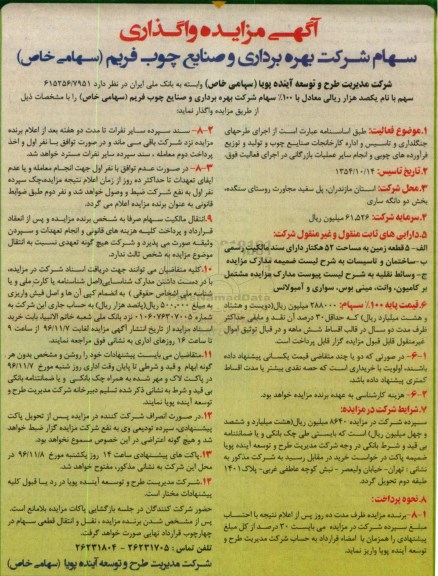 آگهی مزایده واگذاری
سهام شرکت بهره برداری و صنایع چوب فریم (سهامی خاص)
شرکت مدیریت طرح و توسعه آینده پویا (سهامی خاص) وابسته به بانک ملی ایران در نظر دارد ۶۱۵۲۵۶/۷۹۵۱
سهم با نام یکصد هزار ریالی معادل با ۱۰۰٪ سهام شرکت بهره برداری و صنایع چوب فریم (سهامی خاص) را با مشخصات ذیل
از طریق مزایده واگذار نماید:
۱.موضوع فعالیت: طبق اساسنامه عبارت است از اجرای طرحهای
جنگلداری و تاسیس و اداره کارخانجات صنایع چوب و تولید و توزیع
فرآورده های چوبی و انجام سایر عملیات بازرگانی در اجرای فعالیت فوق.
۲.تاریخ تاسیس: ۱۳۵۴/۱۰/۱۴
۳.محل شرکت: استان مازندران، پل سفید مجاورت روستای سنگده،
بخش دو دانگه ساری
۴.سرمایه شرکت: ۶۱،۵۲۶ میلیون ریال
۵.دارایی های ثابت منقول و غیر منقول شرکت:
الف - ۵ قطعه زمین به مساحت ۵۲ هکتار دارای سند مالکیت رسمی
ب- ساختمان و تاسیسات به شرح لیست ضمیمه مدارک مزایده
ج- وسائط نقلیه به شرح لیست پیوست مدارک مزایده مشتمل
بر کامیون، وانت، مینی بوس، سواری و آمبولانس
۶.قیمت پایه ۱۰۰٪ سهام: ۲۸۸۰۰۰ میلیون ریال(دویست و هشتاد
و هشت میلیارد ریال) که حداقل ۳۰ درصد آن نقد و مابقی حداکثر
ظرف مدت دو سال در قالب اقساط شش ماهه و در قبال توثیق اموال
غیرمنقول قابل قبول مزایده گزار قابل پرداخت است.
۶-۱- در صورتی که دو یا چند متقاضی قیمت یکسانی پیشنهاد داده
باشند، اولویت با خریداری است که حصه نقدی بیشتر یا مدت اقساط
کمتری پیشنهاد داده باشد.
۶-۲- هزینه کارشناسی به عهده برنده مزایده خواهد بود.
۷.شرایط شرکت در مزایده:
سپرده شرکت در مزایده ۸۶۴۰ میلیون ریال(هشت میلیارد و ششصد
و چهل میلیون ریال) است که بایستی طی چک بانکی و یا ضمانتنامه
بی قید و شرط بانکی در وجه شرکت مدیریت طرح و توسعه آینده پویا
ضمیمه پاکت در خواست خرید در مقابل رسید به شرکت مذکور به
نشانی: تهران- خیابان ولیعصر - نبش کوچه عاطفی غربی- پلاک ۱۴۰۱
طبقه دوم تحویل گردد.
۸.نحوه پرداخت:
۸-۱- برنده مزایده ظرف مدت ده روز پس از اعلام نتیجه با احتساب
مبلغ سپرده شرکت در مزایده می بایست ۳۰ درصد از کل مبلغ
پیشنهادی را همزمان با امضاء قرارداد به حساب شرکت مدیریت طرح و
توسعه آینده پویا واریز نماید.
۸-۲- سند سپرده سایر نفرات تا مدت دو هفته بعد از اعلام برنده
مزایده نزد شرکت باقی می ماند و در صورت توافق با نفر اول و اخذ
پرداخت دوم معامله، سند سپرده سایر نفرات مسترد خواهد شد.
۸-۳- در صورت عدم توافق با نفر اول جهت انجام معامله و یا عدم
ایفای تعهدات تا حداکثر ده روز از زمان اعلام نتیجه مزایده،چک سپرده
نفر اول به نفع شرکت ضبط و وصول خواهد شد و نفر دوم طبق ضوابط
قانونی به عنوان برنده مزایده اعلام می گردد.
۹.انتقال مالکیت سهام صرفا به شخص برنده مزایده و پس از انعقاد
قرارداد و پرداخت کلیه هزینه های قانونی و انجام تعهدات و سپردن
وثیقه صورت می پذیرد و شرکت هیچ گونه تعهدی نسبت به انتقال
موضوع مزایده به شخص ثالث ندارد.
۱۰.کلیه متقاضیان می توانند جهت دریافت اسناد شرکت در مزایده،
با در دست داشتن مدارک شناسایی(اصل شناسنامه یا کارت ملی و یا
شناسه ملی اشخاص حقوقی) به انضمام کپی آن ها و اصل فیش واریزی
به مبلغ ۵۰۰،۰۰۰ ریال(پانصد هزار ریال) به حساب جاری این شرکت به
شماره نزد بانک ملی شعبه خاتم الانبیا، بابت خرید
اسناد مزایده از تاریخ انتشار آگهی مزایده لغایت ۹۶/۱۱/۷ از ساعت ۹
تا ساعت ۱۶ روزهای اداری به نشانی فوق مراجعه نمایند.
۱۱.متقاضیان می بایست پیشنهادات خود را روشن و مشخص بدون هر
گونه ابهام و قید و شرطی تا پایان وقت اداری روز شنبه مورخ ۹۶/۱۱/۷
در پاکت لاک و مهر شده به همراه چک بانکی و یا ضمانتنامه بانکی
بی قید و شرط به نشانی ذکر شده تسلیم دبیرخانه شرکت مدیریت طرح و
توسعه آینده پویا نمایند.
۱۲.در صورت انصراف شرکت کننده در مزایده پس از تحویل پاکت
پیشنهادی، سپرده تودیعی وی به نفع شرکت مزایده گزار ضبط خواهد
شد و هیچ گونه اعتراضی در این خصوص مسموع نخواهد بود.
۱۳.پاکت های پیشنهادی ساعت ۱۴ روز یکشنبه مورخ ۹۶/۱۱/۸ در
محل این شرکت به نشانی مذکور، مفتوح خواهد شد.
۱۴.شرکت مدیریت طرح و توسعه آینده پویا در رد یا قبول کلیه
پیشنهادات مختار است.
حضور شرکت کنندگان در جلسه بازگشایی پاکات مزایده بلامانع است.
پس از مشخص شدن برنده مزایده، نقل و انتقال قطعی سهام در
چهارچوب قرارداد نهایی صورت خواهد گرفت.
تلفن تماس: ۲۶۲۳۱۷۰۵ - ۲۶۲۳۱۸۰۴
شرکت مدیریت طرح و توسعه آینده پویا (سهامی خاص)